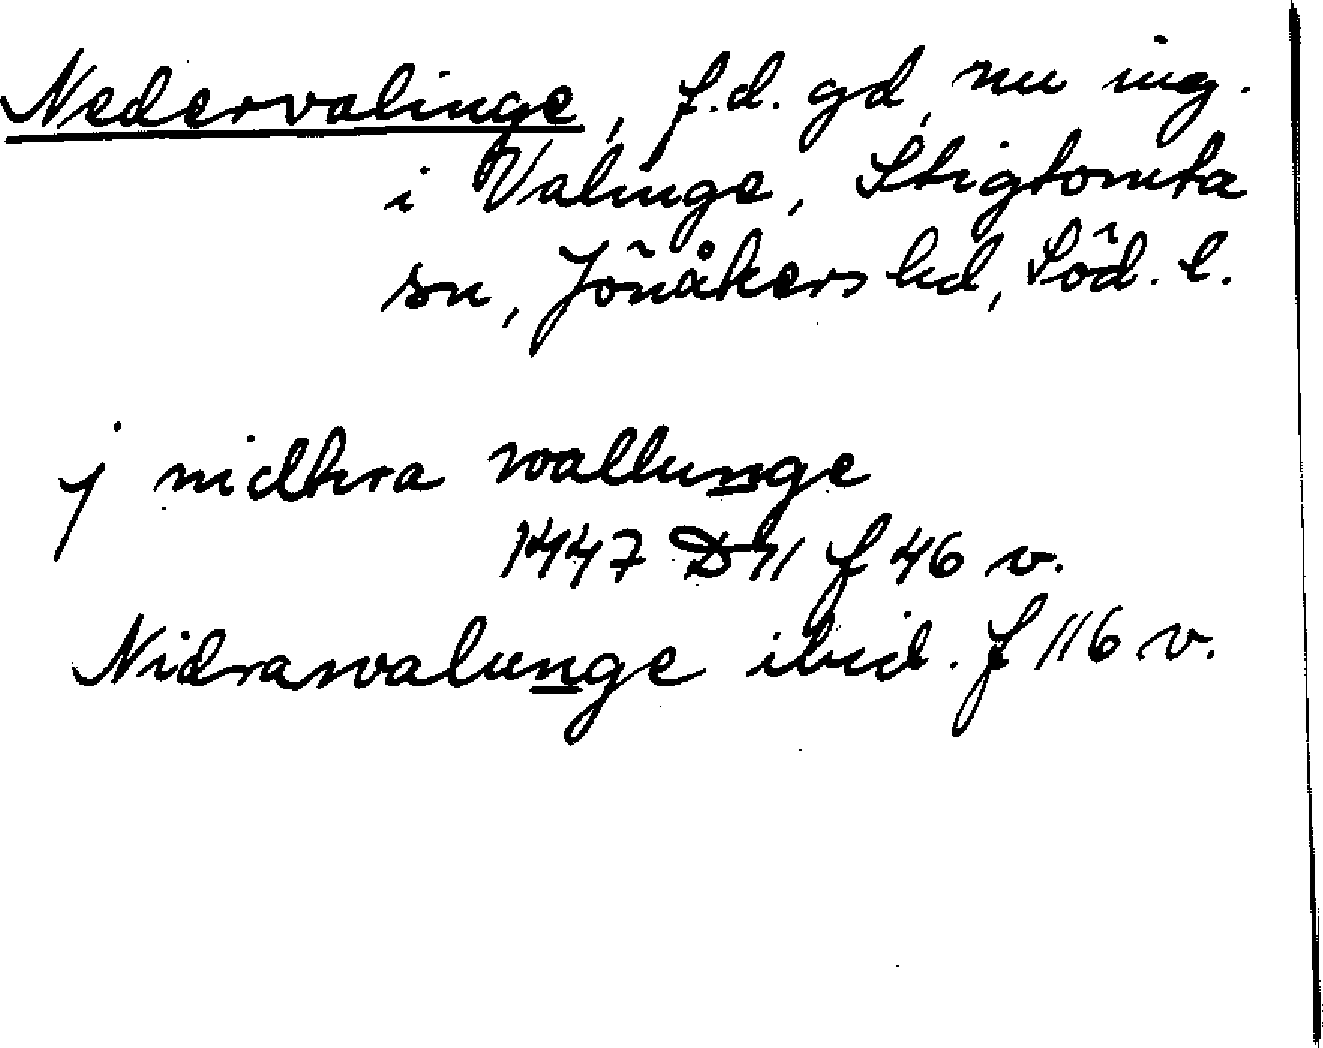 Nedervalinge, f.d. gd, nu ing.
i Valinge, Stigtomta
sn, Jönåkers hd, Söd. l.
j nidhra wallunge
1447 D 11 f 46 v.
Nidrawalunge ibid. f 116 v.